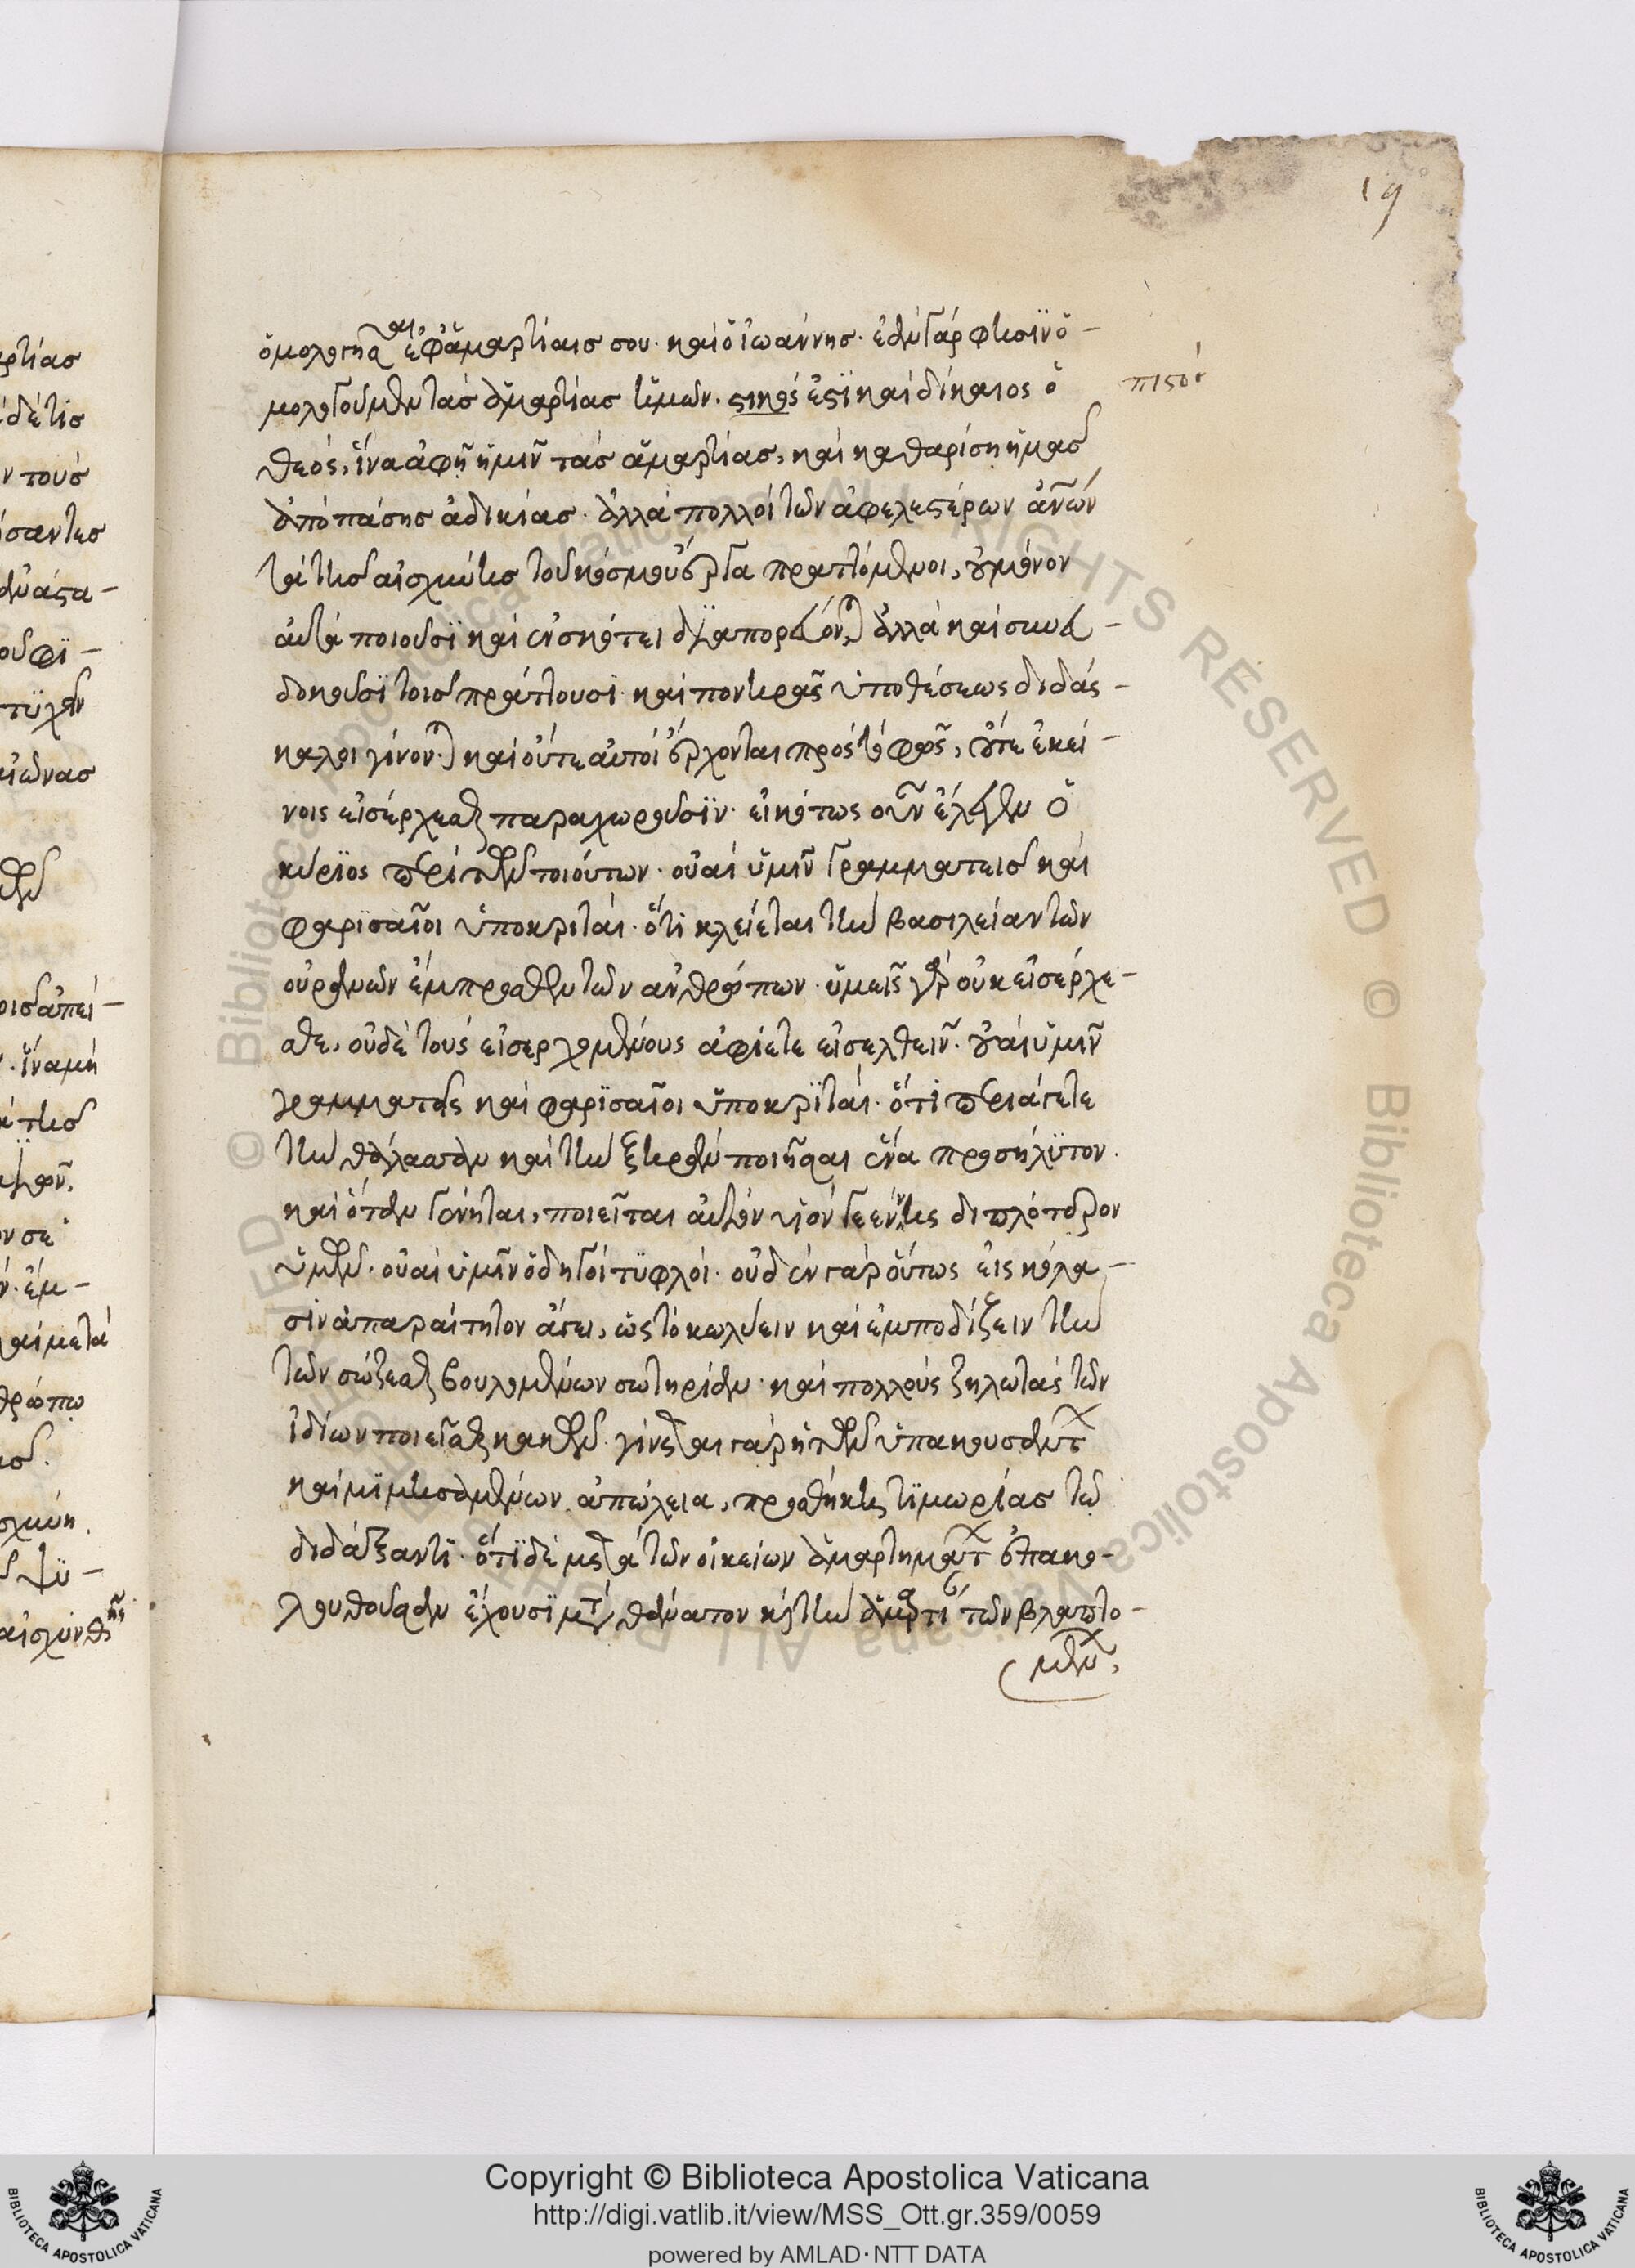 19
ὁμολογῆσαι ἐφ' ἁμαρτίαις σου· καὶ ὁ ἰωάννης· ἐὰν γάρ φησϊν ὁ-
μολογοῦμεν τὰς ἁμαρτίας ἡμῶν· στικός ἐστϊ καὶ δίκαιος ὁ
πιστός
θεός, ἵνα ἀφῇ ἡμῖν τὰς ἁμαρτίας, καὶ καθαρίσῃ ἡμᾶς
ἀπὸ πάσης ἀδικίας· ἀλλὰ πολλοὶ τῶν ἀφελεστέρων ἀνων
τὰ τῆς αἰσχύνης τοῦ κόσμου ἔργα πραττόμενοι, οὐ μόνον
αὐτὰ ποιοῦσϊ καὶ ἐν σκότει ἀλλὰ καὶ συνευ-
δοκοῦσϊ τοῖς πράττουσϊ· καὶ πονηρᾶς ὑποθέσεως διδάσ-
καλοι γίνονται καὶ οὔτε αὐτοὶ ἔρχονται πρὸς τὸ φῶς, οὔτε ἐκεί-
νοις εἰσέρχεσθαι παραχωροῦσϊν· εἰκότως οὖν ἔλεγεν ὁ
κύρϊος περὶ τῶν τοιούτων· οὐαὶ ὑμῖν γραμματεῖς καὶ
φαρϊσαῖοι ὑποκριταί· ὅτι κλείεται τὴν βασιλείαν τῶν
οὐρανῶν ἔμπροσθεν τῶν ἀνθρώπων· ὑμεῖς γὰρ οὐκ εἰσέρχε-
σθε, οὐδὲ τοὺς εἰσερχομένους ἀφίετε εἰσελθεῖν· οὐαὶ ὑμῖν
γραμματεῖς καὶ φαρϊσαῖοι ὑποκρϊταί· ὅτι περιάγετε
τὴν θάλασσαν καὶ τὴν ξηρὰν ποιῆσαι ἕνα προσήλϋτον·
καὶ ὅταν γένηται, ποιεῖται αὐτὸν υἱὸν γεέννης διπλότερον
ὑμῶν· οὐαὶ ὑμῖν ὁδηγοὶ τϋφλοί· οὐδὲν γὰρ οὕτως εἰς κόλα-
σϊν ἀπαραίτητον ἄγει, ὡς τὸ κωλύειν καὶ ἐμποδίζειν τὴν
τῶν σώζεσθαι βουλομένων σωτηρίαν· καὶ πολλοὺς ζηλωτὰς τῶν
ἰδίων ποιεῖσθαι κακῶν· γίνεται γὰρ ἡ τῶν ὑπακουσάντων
καὶ μϊμησαμένων ἀπώλεια, προσθήκης τϊμωρίας τῷ
διδάξαντϊ· ὅτϊ δὲ μετὰ τῶν οἰκείων ἁμαρτημάτων ἐπακο-
λουθοῦσαν ἔχουσϊ μετὰ θάνατον καὶ τὴν ἁμαρτίαν τῶν βλαπτο-
μένων,
Copyright © Biblioteca Apostolica Vaticana
http://digi.vatlib.it/view/MSS_Ott.gr.359/0059
powered by AMLAD·NTT DATA